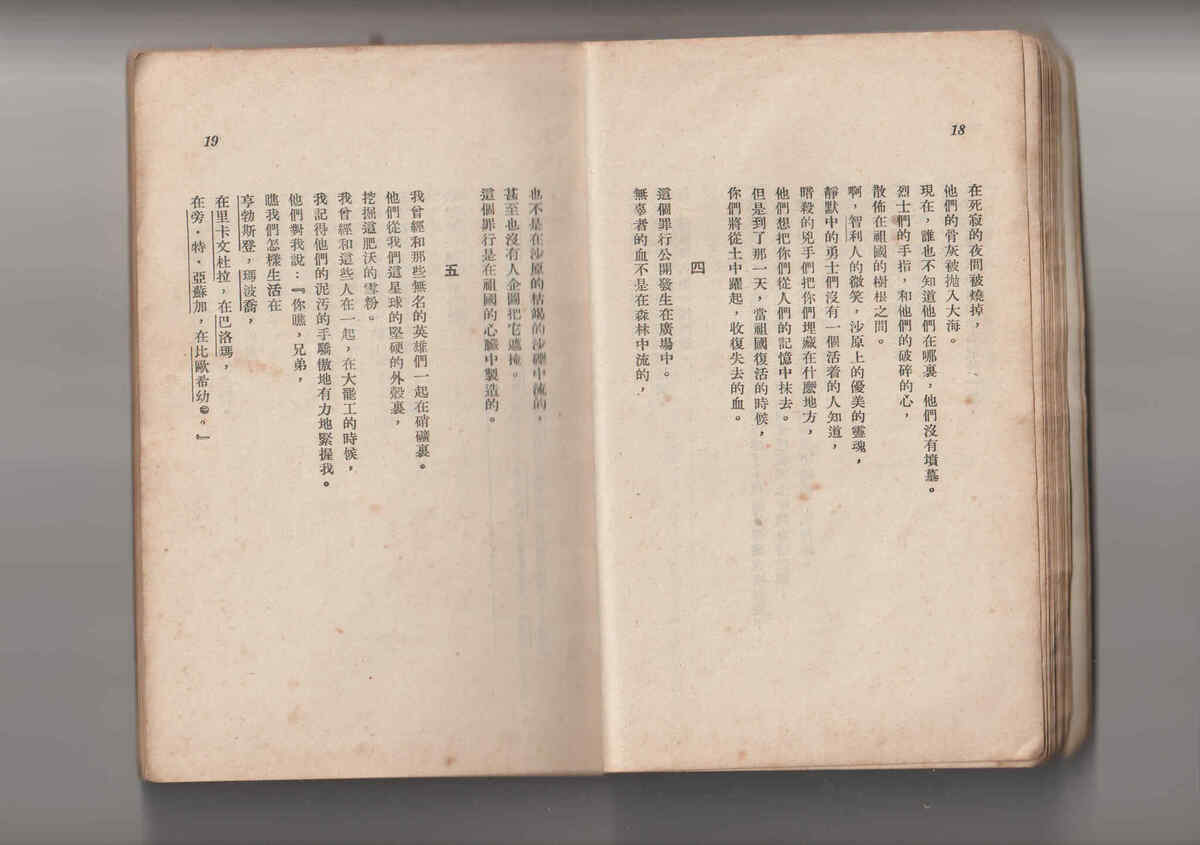 18
在死寂的夜間被燒掉，
他們的骨灰被拋入大海。
現在，誰也不知道他們在哪裏，他們沒有墳墓。
烈士們的手指，和他們的破碎的心，
散佈在祖國的樹根之間。
啊，智利人的微笑，沙原上的優美的靈魂，
靜默中的勇士們沒有一個活着的人知道，
暗殺的兇手們把你們埋藏在什麼地方，
他們想把你們從人們的記憶中抹去。
但是到了那一天，當祖國復活的時候，
你們將從土中躍起，收復失去的血。
四
這個罪行公開發生在廣場中。
無辜者的血不是在森林中流的，
19
也不是在沙原的枯竭的沙礫中流的，
甚至也沒有人企圖把它遮掩。
這個罪行是在祖國的心臟中製造的。
五
我曾經和那些無名的英雄們一起在硝礦裏。
他們從我們這星球的堅硬的外殼裏，
挖掘這肥沃的雪粉。
我曾經和這些人在一起，在大罷工的時候，
我記得他們的泥污的手驕傲地有力地緊握我。
他們對我說：『你瞧，兄弟，
瞧我們怎樣生活在
亨勃斯登，瑪波喬，
在里卡文杜拉，在巴洛瑪，
在旁·特·亞蘇加，在比歐希幼㊁。』